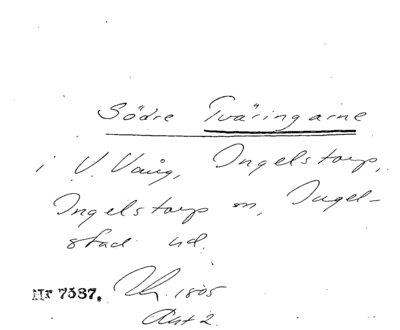 Södre Tväringarne
i V. Vång, Ingelstorp,
Ingelstorp sn, Ingel-
stad hd.
Nr 7587. 1805
Akt 2.